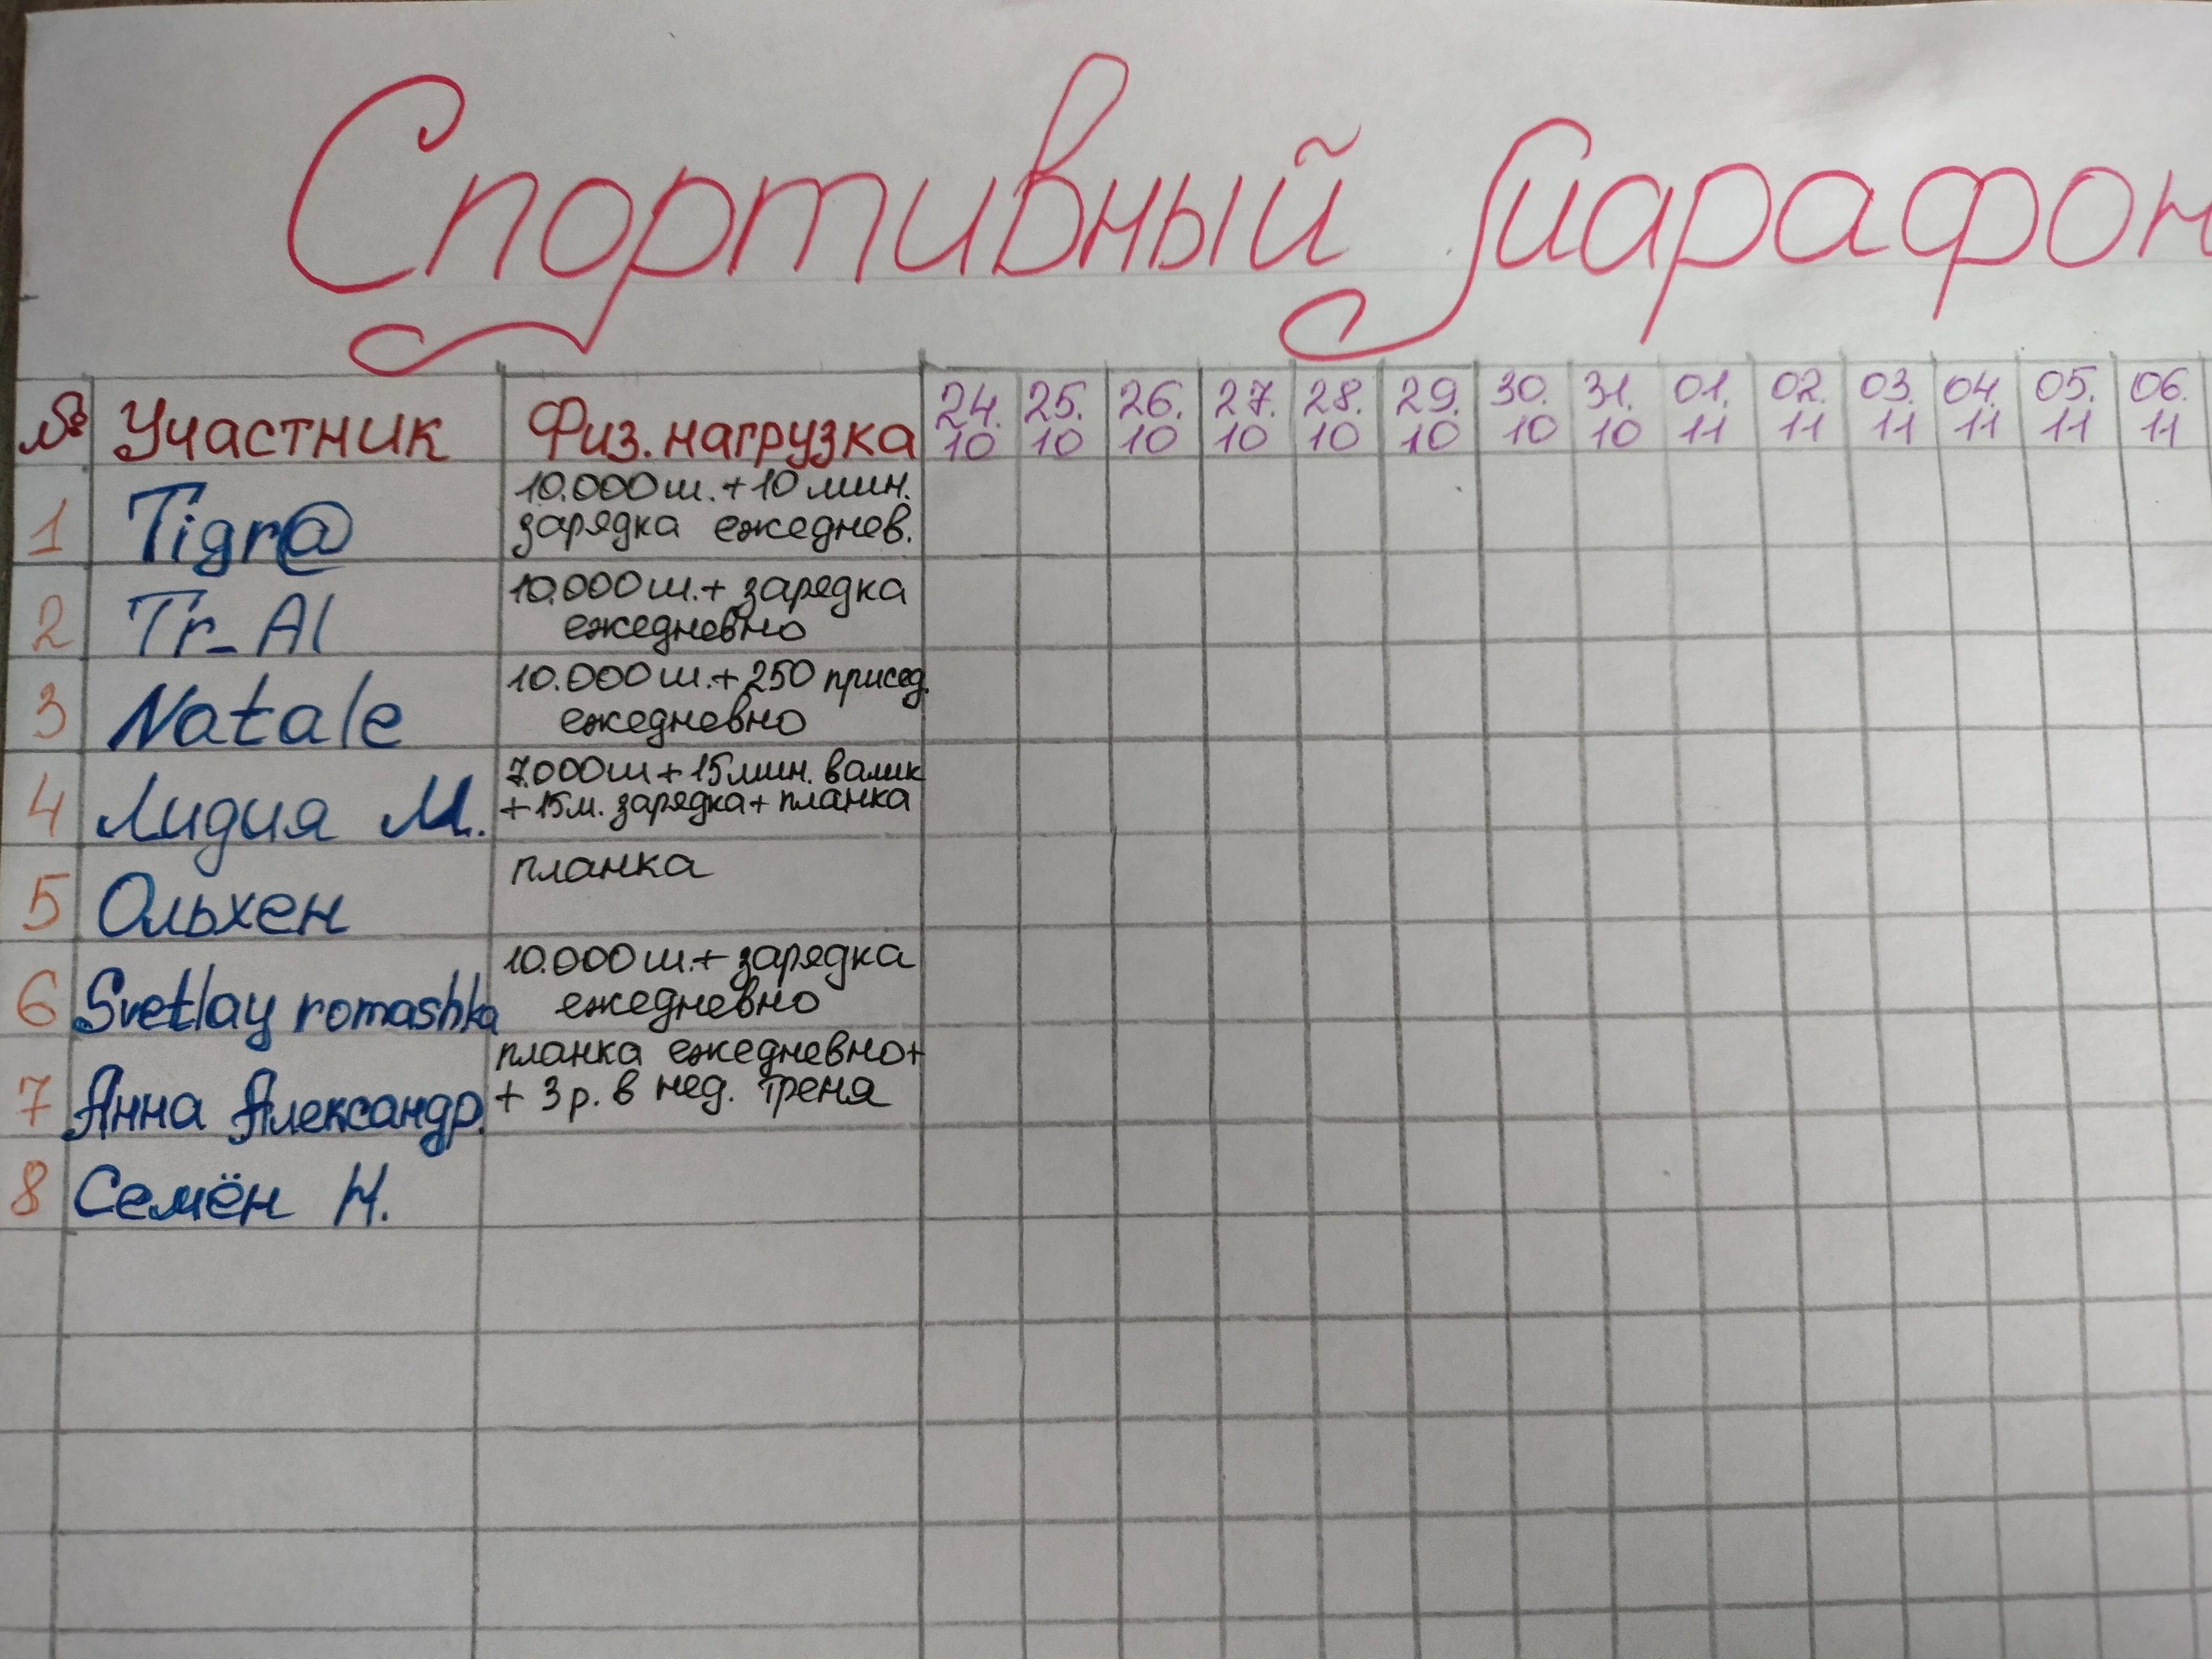 Спортивный марафон
№ Участник Физ. нагрузка 24.10 25.10 26.10 27.10 28.10 29.10 30.10 31.10 01.11 02.11 03.11 04.11 05.11 06.11
1 Tigr@ 10.000 ш. + 10 мин.
зарядка ежеднев.
2 Tr_Al 10.000 ш. + зарядка
ежедневно
3 Natale 10.000 ш. + 250 присед.
ежедневно
4 Лидия М. 7.000 ш + 15 мин. валик
+ 15 м. зарядка + планка
5 Ольхен планка
6 Svetlay romashka 10.000 ш. + зарядка
ежедневно
7 Анна Александр. планка ежедневно +
+ 3 р. в нед. треня
8 Семён Н.